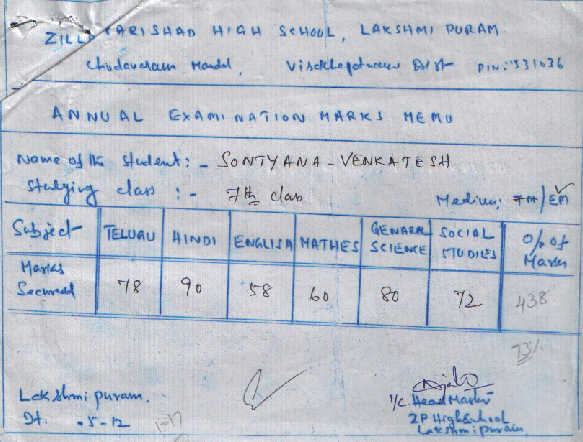 ZILLA PARISHAD HIGH SCHOOL, LAKSHMI PURAM
Chodavaram Mandal, Visakhapatnam Dist PIN: 531036
ANNUAL EXAMINATION MARKS MEMO
Name of the Student: - SONTYANA - VENKATESH
Studying class : - 7th class
Medium: TM/EM
Subject TELUGU HINDI ENGLISH MATHES GENARAL SCIENCE SOCIAL STUDIES % of Marks
Marks Secured 78 90 58 60 80 72 438
73%
Lakshmi puram.
Dt. -5-12
I/C. Head Master
ZP High School
Lakshmi puram